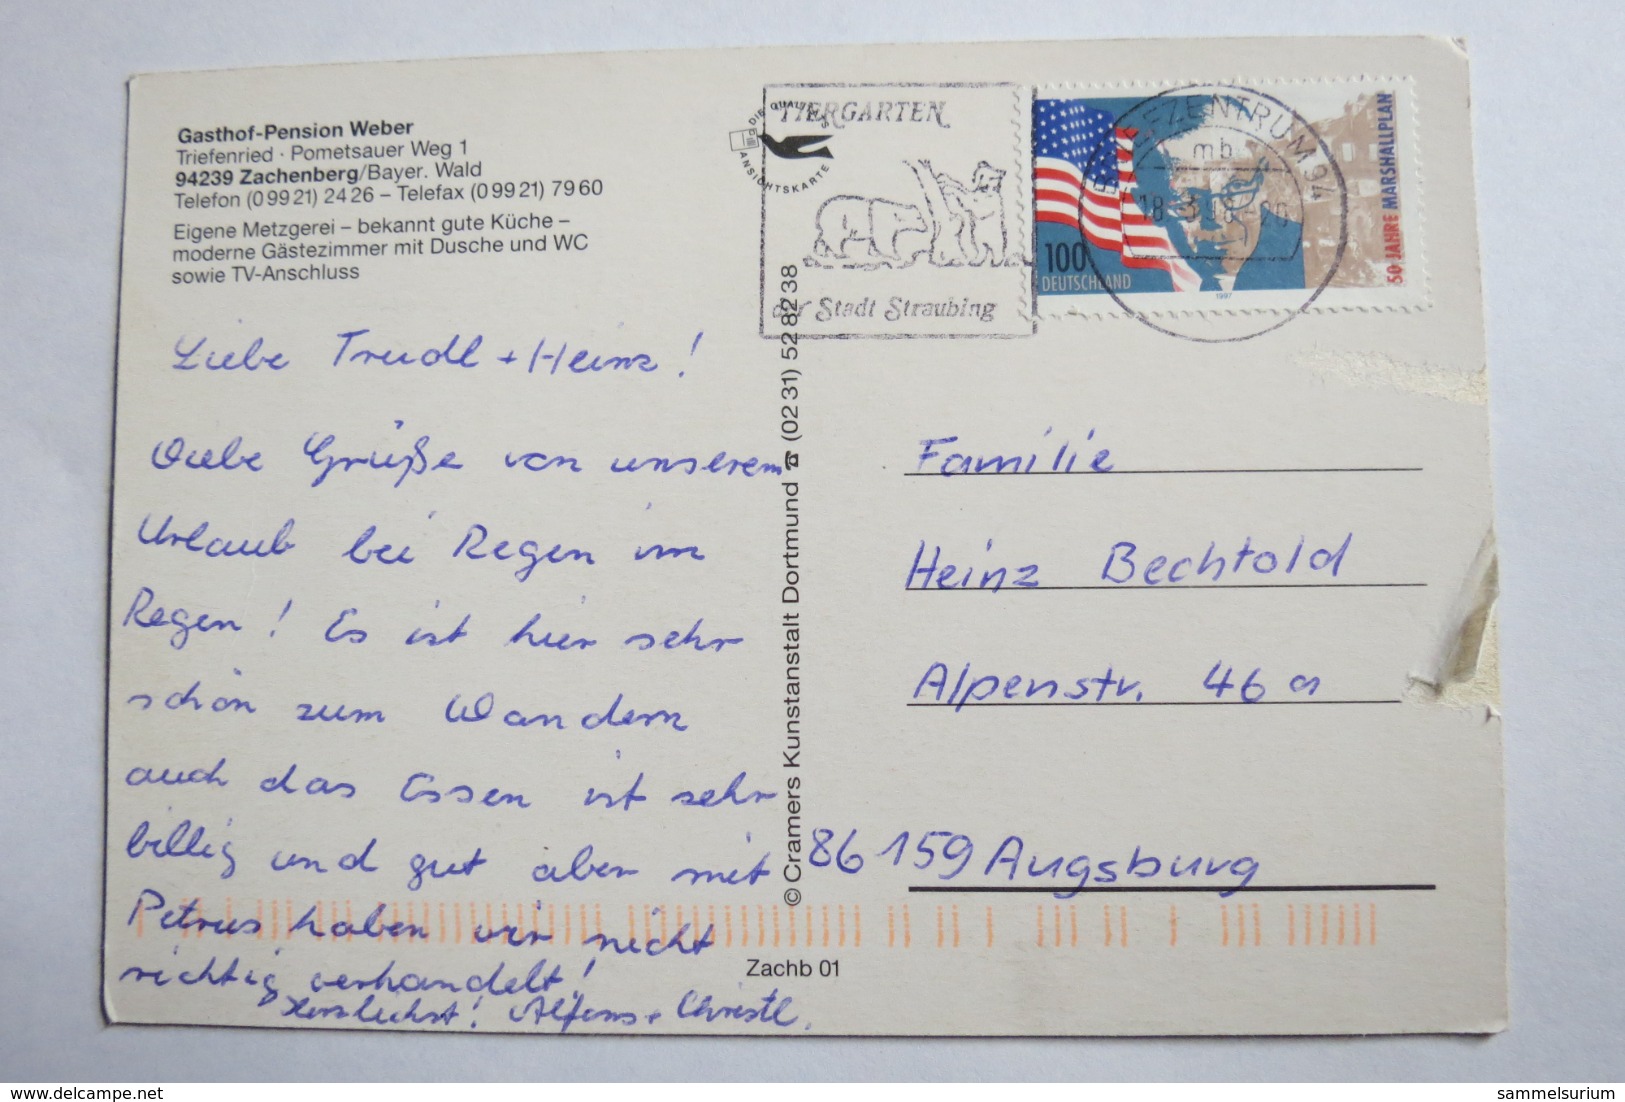 Gasthof-Pension Weber
Triefenried · Pometsauer Weg 1
94239 Zachenberg/Bayer. Wald
Telefon (0 99 21) 24 26 – Telefax (0 99 21) 79 60
Eigene Metzgerei – bekannt gute Küche –
moderne Gästezimmer mit Dusche und WC
sowie TV-Anschluss
Liebe Trudl + Heinz!
Liebe Grüße von unserem
Urlaub bei Regen im
Regen! Es ist hier sehr
schön zum Wandern
auch das Essen ist sehr
billig und gut aber mit
Petrus haben wir nicht
richtig verhandelt!
Herzlichst! Alfons + Christl.
© Cramers Kunstanstalt Dortmund ☎ (02 31) 52 82 38
Zachb 01
DIE QUALITÄTS
ANSICHTSKARTE
TIERGARTEN
der Stadt Straubing
BRIEFZENTRUM 94
mb
18.-3.98
100
DEUTSCHLAND
1997
50 JAHRE MARSHALLPLAN
Familie
Heinz Bechtold
Alpenstr. 46a
86159 Augsburg
sammelsurium
delcampe.net